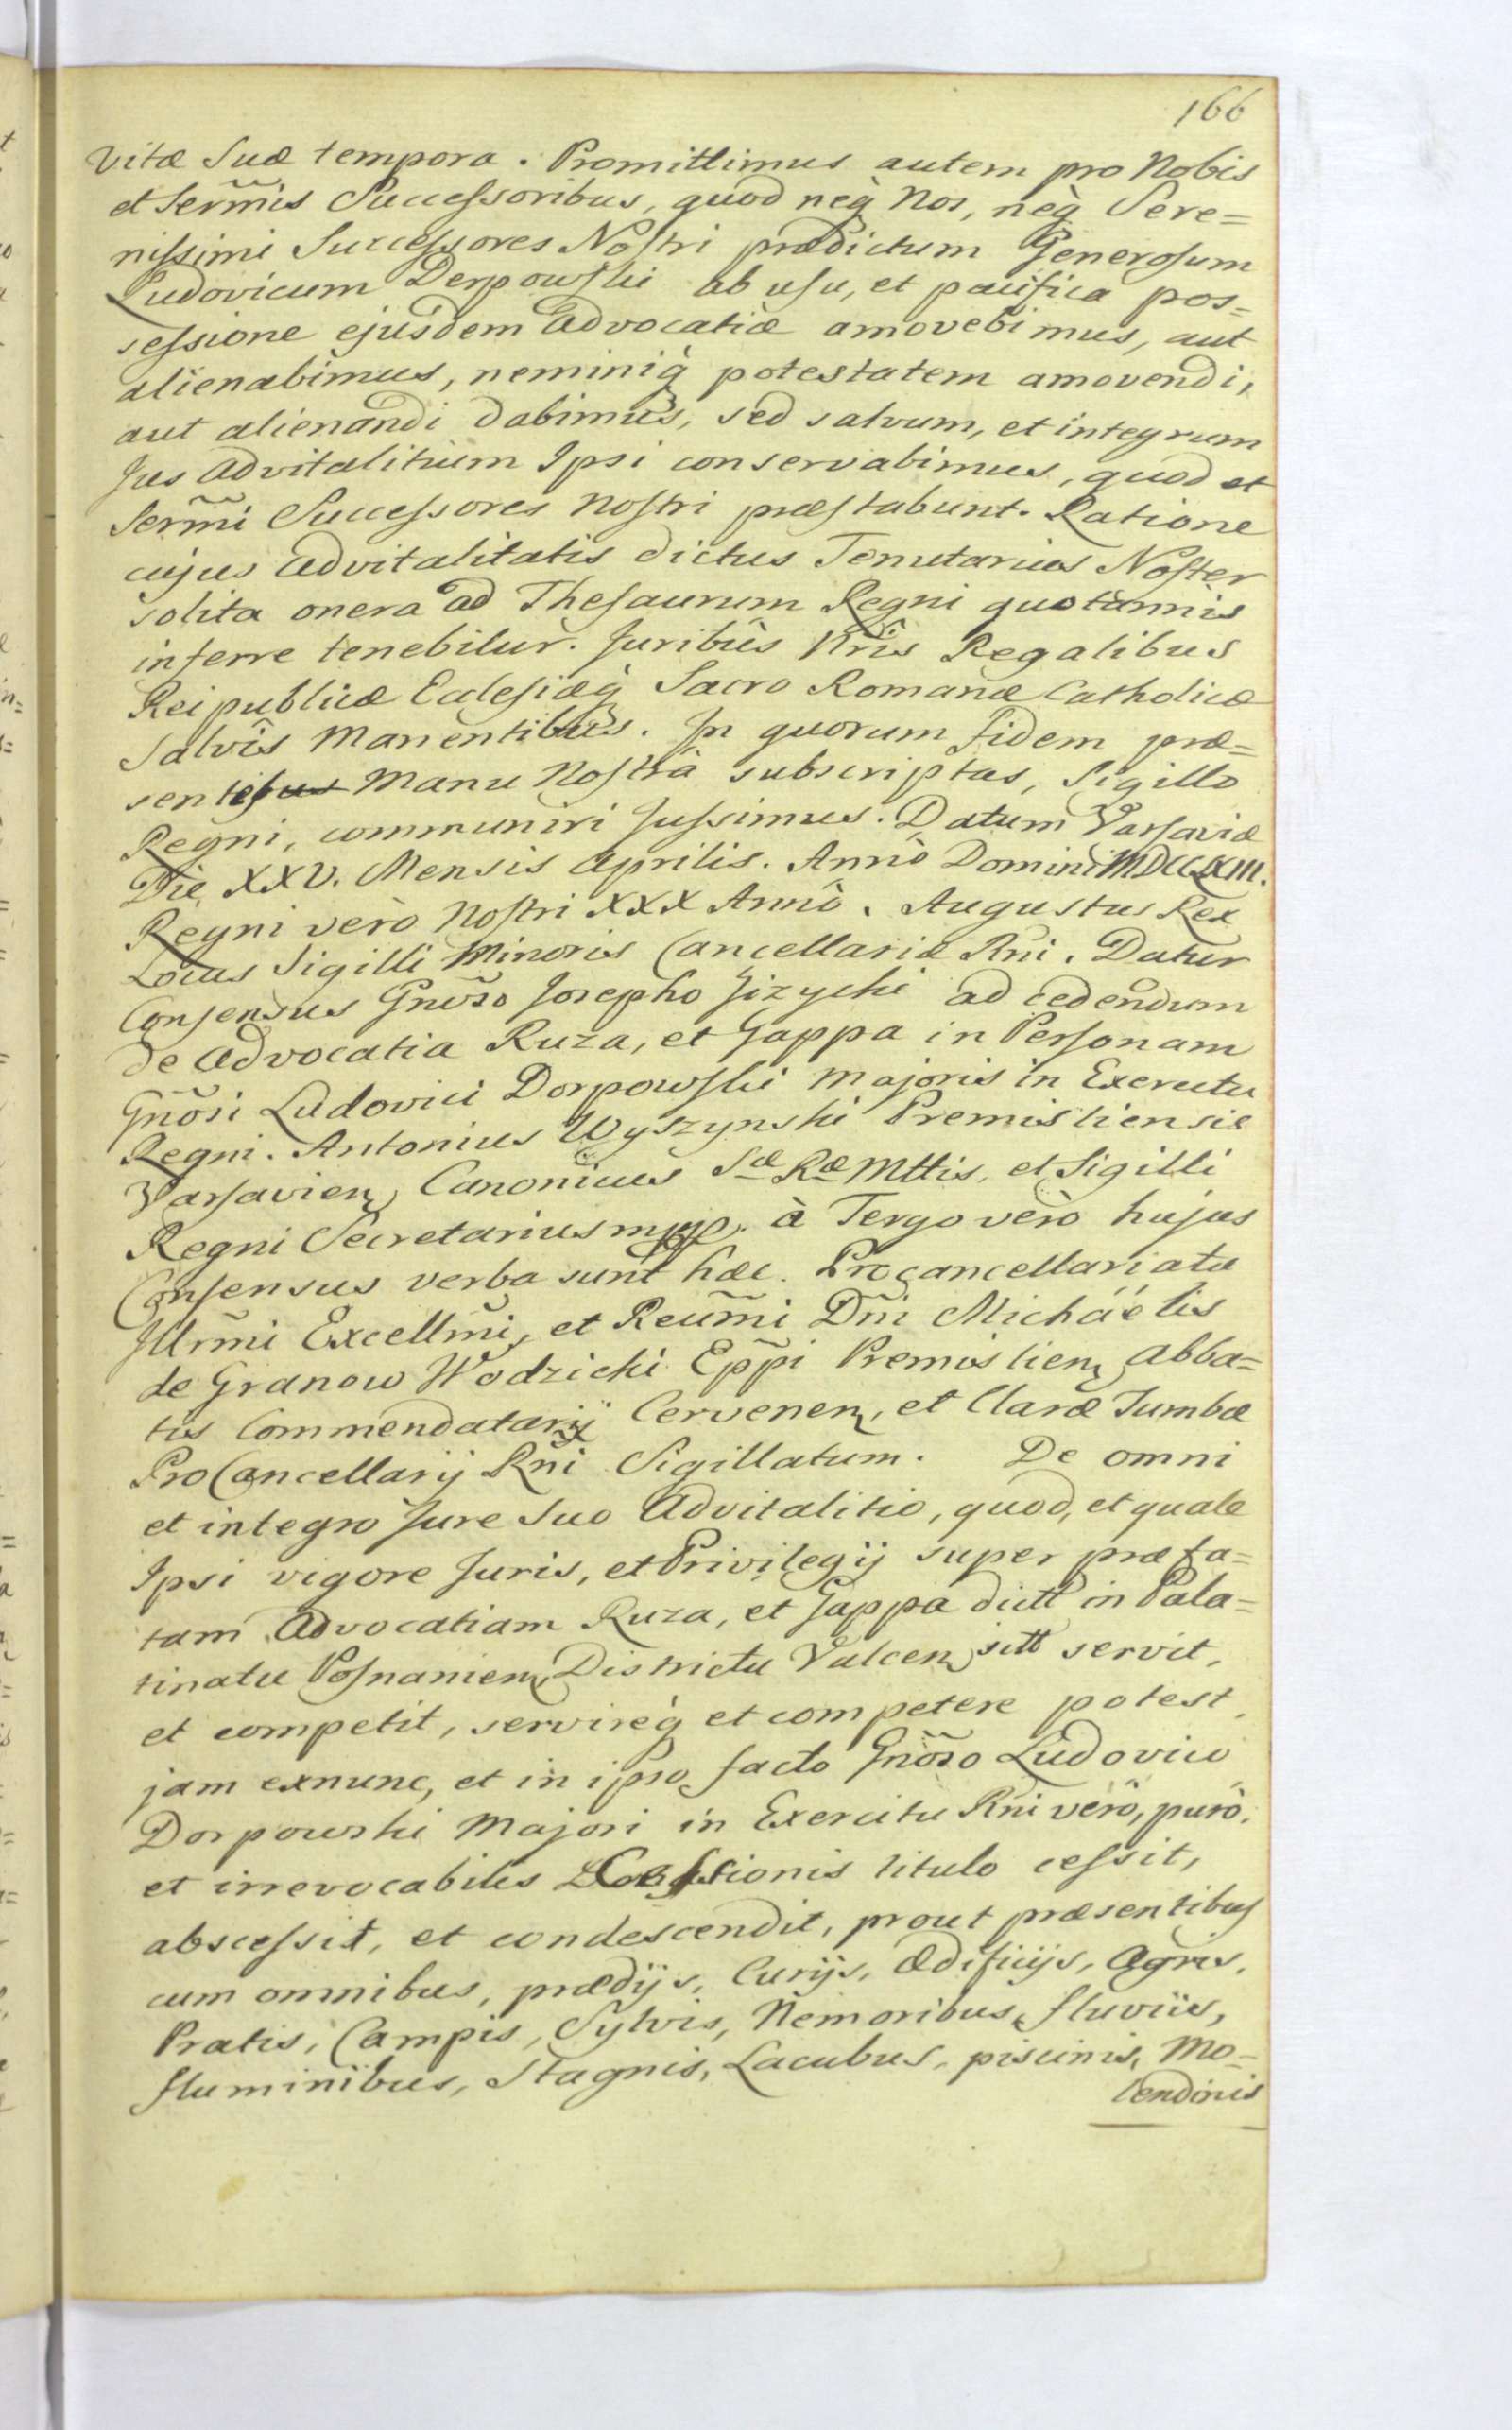 166
Vitæ Suæ tempora. Promittimus autem pro Nobis
et Serm̃is Succeſsoribus, quod neq̀ Nos, neq̀ Sere=
niſsimi Succeſsores Noſtri prædictum Generoſum
Ludovicum Derpowſki ab uſu, et pacifica pos=
seſsione ejusdem Advocatiæ amovebimus, aut
alienabimus, neminiq̀ potestatem amovendi,
aut alienandi dabimus, sed salvum, et integrum
Jus Advitalitium Ipsi conservabimus, quod et
Serm̃i Succeſsores noſtri præſtabunt. Ratione
cujus Advitalitatis dictus Tenutarius Noſter
solita onera ad Theſaurum Regni quotannis
inferre tenebitur. Juribus Nr̃is Regalibus
Reipublicæ Eccleſiæq̀ Sacro Romanæ Catholicæ
Salvis Manentibus. In quorum fidem præ=
sentes Manu Noſtrâ subscriptas, Sigillo
Regni, communiri juſsimus. Datum Varſaviæ
Die XXV. Mensis Aprilis. Annô Domini MDCCLXIII.
Regni verò Noſtri XXX Annô. Augustus Rex
Locus Sigilli Minoris Cancellariæ Rñi. Datur
Conſensus Gnõso Josepho Jizycki ad cedendum
de Advocatia Ruza, et Gappa in Perſonam
Gnõsi Ludovici Dorpowſki Majoris in Exercitu
Regni. Antonius Wyszynski Premisliensis
Varſavien, Canonicus Sæ Ræ Mttis, et Sigilli
Regni Secretarius mpp. à Tergo verò hujus
Conſensus verba sunt hæc. Procancellariatu
Illrm̃i Excellm̃i, et Reum̃i Dñi Michaëlis
de Granow Wodzicki Epp̃i Premislien, Abba=
tis Commendatarij Cervenen, et Claræ Tumbæ
ProCancellarij Rñi Sigillatum. De omni
et integro Jure Suo Advitalitio, quod, et quale
Ipsi vigore Juris, et Privilegij super præfa=
tam Advocatiam Ruza, et Gappa dictt in Pala=
tinatu Poſnanien, Districtu Valcen, sitt servit,
et competit, servireq̀ et competere potest,
jam exnunc, et in ipso facto Gnõso Ludovico
Dorpowski Majori in Exercitu Rñi verò, purò,
et irrevocabilis Ceſsionis titulo ceſsit,
absceſsit, et condescendit, prout præsentibus
cum omnibus, prædijs, Curijs, Ædificijs, Agris,
Pratis, Campis, Sylvis, Nemoribus, fluviis,
fluminibus, Stagnis, Lacubus, piscinis, Mo=
lendinis